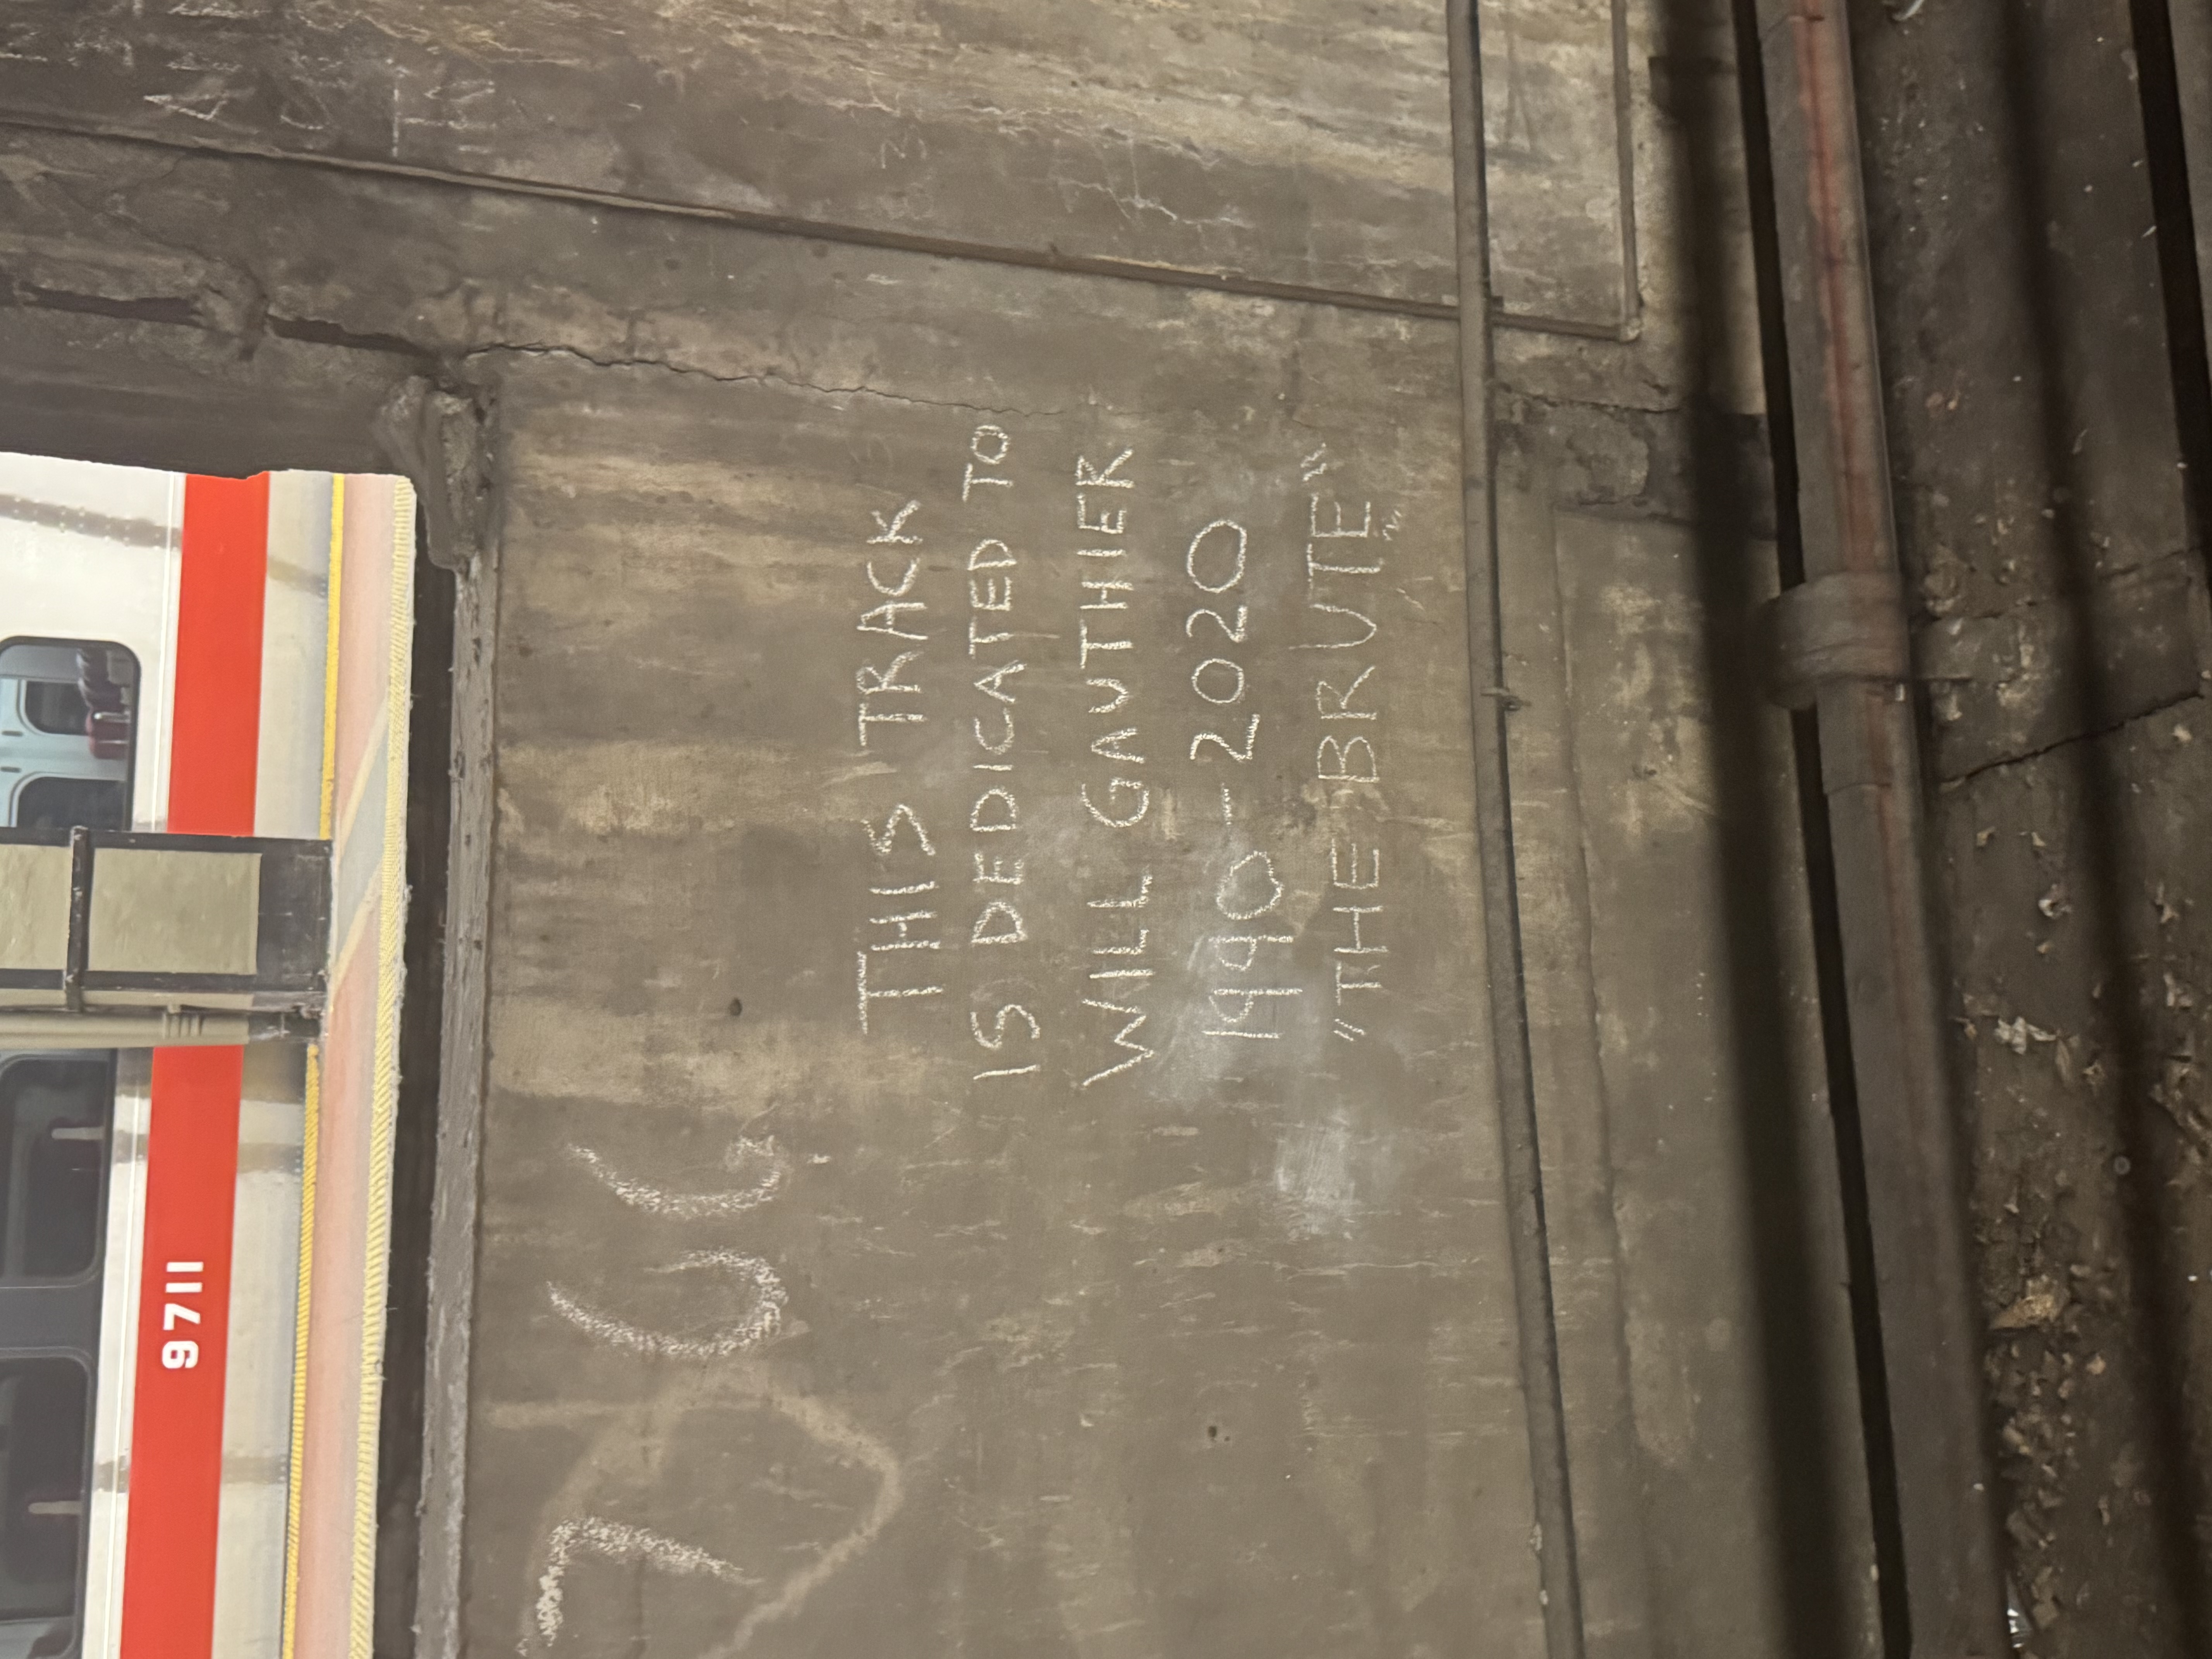 9711
7 6 6
THIS TRACK
IS DEDICATED TO
WILL GAUTHIER
1990-2020
"THE BRUTE"